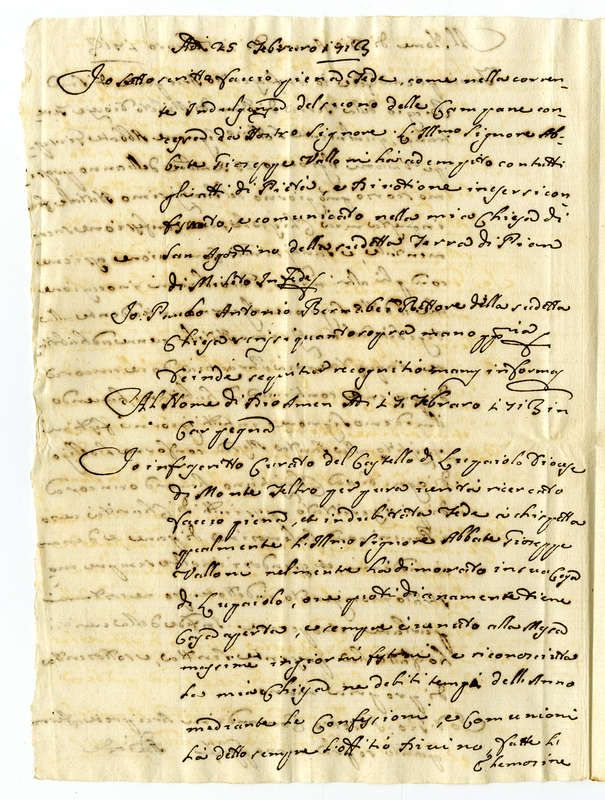 Adi 25 Febraro 1713
Io sottoscritto faccio piena Fede, come nella corren-
te Indulgenza del suono delle Campane con-
cessa da Nostro Signore L'Illmo Signore Ab-
bate Gioseppe Valloni hà adempito con tutti
gl'atti di Pietà, e Divotione in essersi con
fessato, e comunicato nella mia Chiesa di
San Agostino della sudetta Terra di Pian
di Mileto In Fede
Io Paulo Antonio Bernabei Rettore della sudetta
Chiesa scrissi quanto sopra mano ppria
Deinde sequitur recognitio manus in forma
Al Nome di Dio Amen Adi 17 Febraro 1713 in
Carpegna
Io infrascritto Curato del Castello di Lupaiolo Diocese
di Monte Feltro per pura verità ricercato
faccio piena, et indubitata Fede à chi spetta
qualmente L'Illmo Signore Abbate Gioseppe
Valloni hà dimorato in sua Casa
di Lupaiolo, ove quotidianamente tiene
Casa aperta, e sempre è venuto alla Messa
massime in giorni festivi, e riconosciuta
la mia Chiesa ne debiti tempi dell'Anno
mediante le Confessioni, e Comunioni
hà detto sempre l'offitio Divino, fatte l'
Elemosine